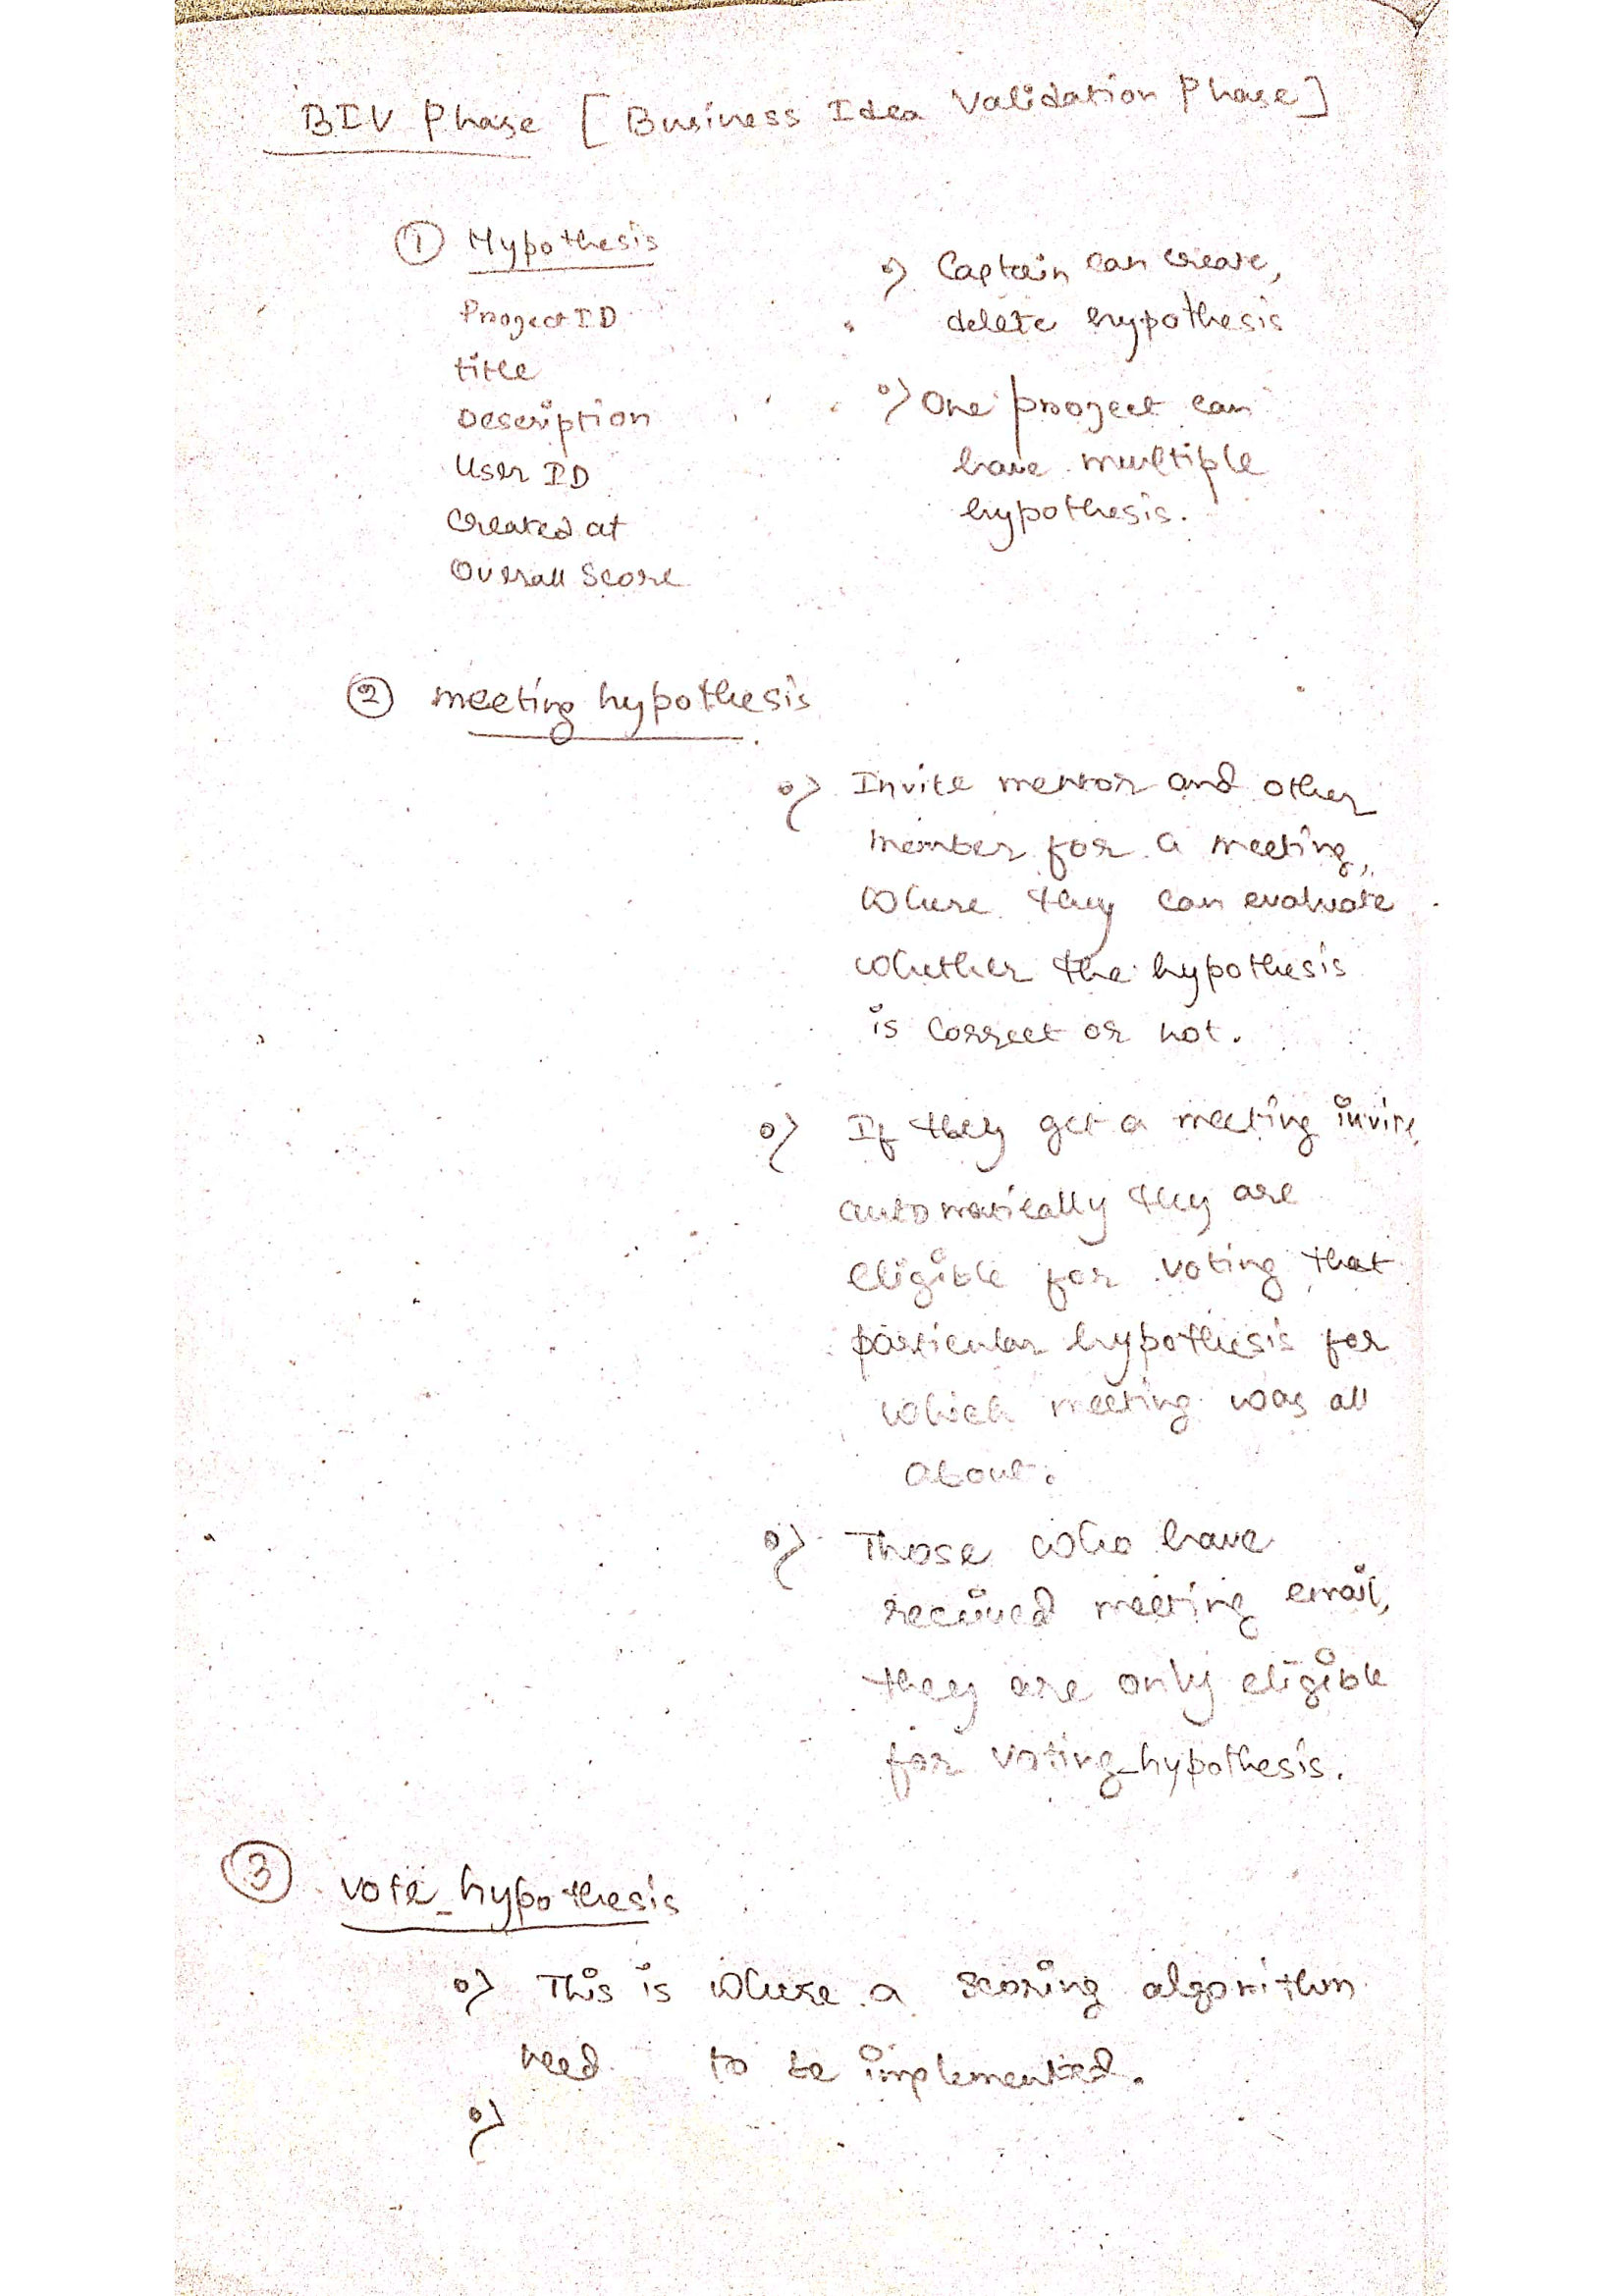 BIV Phase [Business Idea Validation Phase]
① Hypothesis
Project ID
title
Description
User ID
Created at
Overall Score
Captain can create,
delete hypothesis
One project can
have multiple
hypothesis.
② meeting hypothesis
Invite mentor and other
member for a meeting,
where they can evaluate
whether the hypothesis
is correct or not.
If they get a meeting invite,
automatically they are
eligible for voting that
particular hypothesis for
which meeting was all
about.
Those who have
received meeting email,
they are only eligible
for voting_hypothesis.
③ vote_hypothesis
This is where a scoring algorithm
need to be implemented.